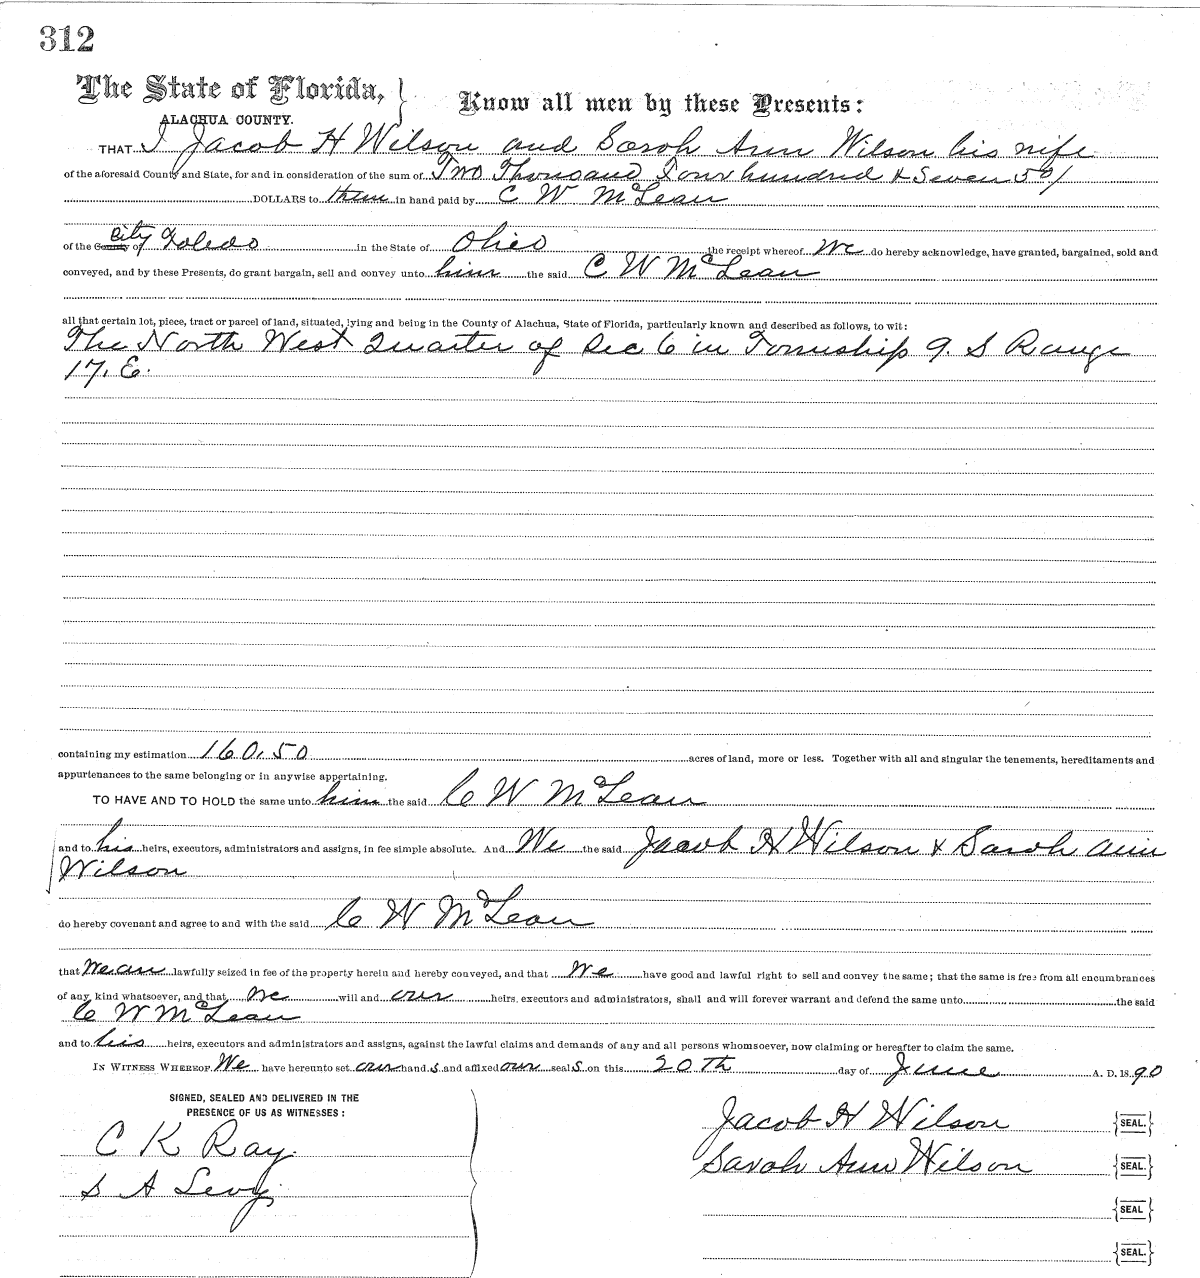 312
The State of Florida,
ALACHUA COUNTY.
Know all men by these Presents:
THAT I Jacob H Wilson and Sarah Ann Wilson his wife
of the aforesaid County and State, for and in consideration of the sum of Two Thousand Four hundred & Seven 50/
DOLLARS to them in hand paid by C W McLean
of the County City of Toledo in the State of Ohio the receipt whereof we do hereby acknowledge, have granted, bargained, sold and
conveyed, and by these Presents, do grant bargain, sell and convey unto him the said C W McLean
all that certain lot, piece, tract or parcel of land, situated, lying and being in the County of Alachua, State of Florida, particularly known and described as follows, to wit:
The North West Quarter of Sec 6 in Township 9. S Range
17. E.
containing my estimation 160.50 acres of land, more or less. Together with all and singular the tenements, hereditaments and
appurtenances to the same belonging or in anywise appertaining.
TO HAVE AND TO HOLD the same unto him the said C W McLean
and to his heirs, executors, administrators and assigns, in fee simple absolute. And We the said Jacob H Wilson & Sarah Ann
Wilson
do hereby covenant and agree to and with the said C W McLean
that we are lawfully seized in fee of the property herein and hereby conveyed, and that We have good and lawful right to sell and convey the same; that the same is free from all encumbrances
of any kind whatsoever, and that we will and our heirs, executors and administrators, shall and will forever warrant and defend the same unto the said
C W McLean
and to his heirs, executors and administrators and assigns, against the lawful claims and demands of any and all persons whomsoever, now claiming or hereafter to claim the same.
IN WITNESS WHEREOF We have hereunto set our hand s and affixed our seal s on this 20th day of June A. D. 18 90
SIGNED, SEALED AND DELIVERED IN THE
PRESENCE OF US AS WITNESSES:
C K Ray
S A Levy
Jacob H Wilson SEAL.
Sarah Ann Wilson SEAL.
SEAL
SEAL.